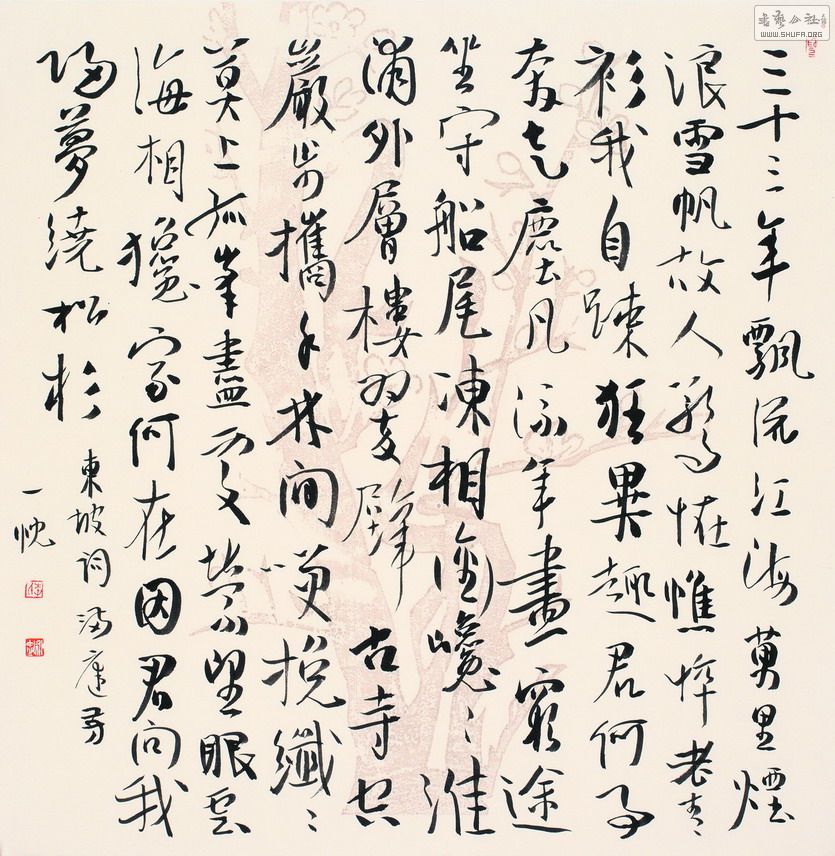 書藝公社
WWW.SHUFA.ORG
三十三年飄流江海萬里煙
浪雪帆故人驚怪憔悴老青
衫我自踈狂異趣君何事
奔走塵凡流年盡窮途
坐守船尾凍相銜巉〻淮
浦外層樓翠壁古寺空
巖步攜手林間笑挽纖〻
莫上孤峯盡處縈望眼雲
海相攙家何在因君問我
歸夢繞松杉
東坡詞滿庭芳
一忱